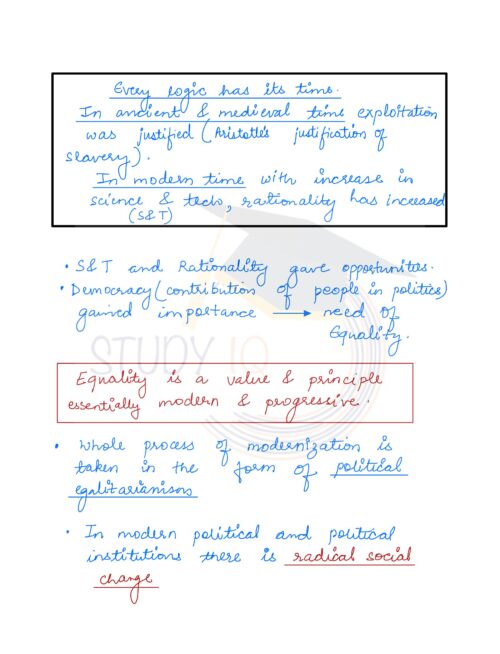 Every logic has its time.
In ancient & medieval time exploitation
was justified (Aristotle's justification of
slavery).
In modern time with increase in
science & tech, rationality has increased
(S&T)
• S&T and Rationality gave opportunities.
• Democracy (contribution of people in politics)
gained importance → need of
Equality.
STUDY IQ
Equality is a value & principle
essentially modern & progressive.
• Whole process of modernization is
taken in the form of political
egalitarianisms
• In modern political and political
institutions there is radical social
change